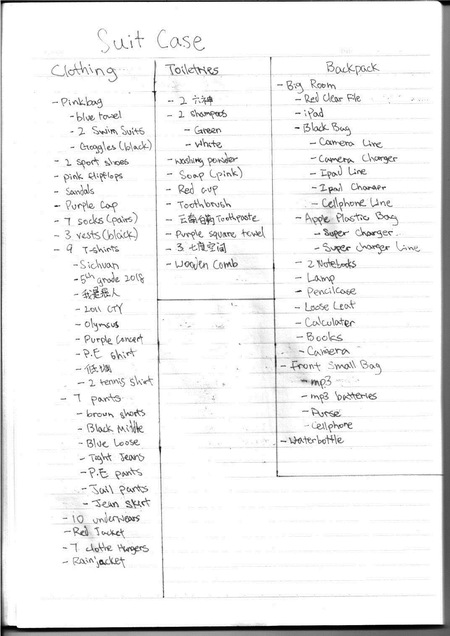 Suit Case
Clothing
- Pinkbag
- blue towel
- 2 Swim Suits
- Goggles (black)
- 2 sport shoes
- pink flipflops
- Sandals
- Purple Cap
- 7 socks (pairs)
- 3 vests (black)
- 9 T-shirts
- Sichuan
- 5th grade 2018
- 2011 CTY
- Olympus
- Purple Concert
- P.E shirt
- 2 tennis shirt
- 7 pants
- brown shorts
- Black Middle
- Blue Loose
- Tight Jeans
- P.E pants
- Jail pants
- Jean skirt
- 10 underwears
- Red Jacket
- 7 clothe Hungers
- Rain jacket
Toiletries
- 2 六神
- 2 shampoos
- Green
- White
- washing powder
- Soap (pink)
- Red cup
- Toothbrush
- 云南白药 Toothpaste
- Purple square towel
- 3 七度空间
- Wooden Comb
Backpack
- Big Room
- Red Clear File
- iPad
- Black Bag
- Camera Line
- Camera Charger
- Ipad Line
- Ipad Charger
- Cellphone Line
- Apple Plastic Bag
- Super charger
- Super charger Line
- 2 Notebooks
- Lamp
- Pencilcase
- Loose Leaf
- Calculater
- Books
- Camera
- Front Small Bag
- mp3
- mp3 batteries
- Purse
- Cellphone
- Waterbottle